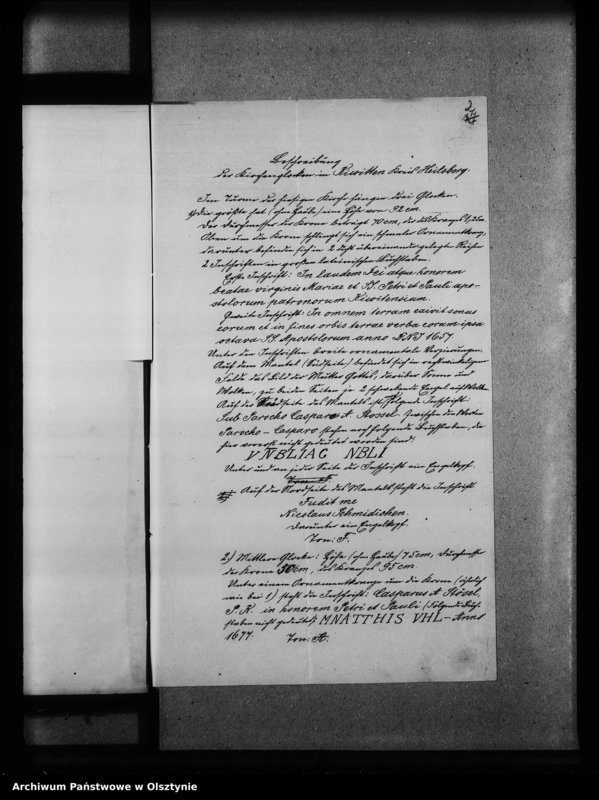 2
Beschreibung
der Kirchenglocken in Kiwitten Kreis Heilsberg.
Im Turm der hiesigen Kirche hängen drei Glocken.
1) Die größte hat (ohne Haube) eine Höhe von 92 cm.
Der Durchmesser der Krone beträgt 70 cm, des Kranzes 1,21 m.
Oben um die Krone schlingt sich ein schmaler Ornamentkranz,
darunter befinden sich in 2 dicht übereinandergelegte Reihen
2 Inschriften in großen lateinischen Buchstaben.
Erste Inschrift: In laudem Dei atque honorem
beatae virginis Mariae et SS. Petri et Pauli apo-
stolorum patronorum Kiwitensium.
Zweite Inschrift: In omnem terram exivit sonus
eorum et in fines orbis terrae verba eorum ipsa
octava SS. Apostolorum anno DNJ 1657.
Unter den Inschriften breite ornamentale Verzierungen.
Auf dem Mantel (Südseite) befindet sich in rechteckigem
Felde das Bild der Mutter Gottes, darüber Sonne und
Wolken, zu beiden Seiten je 2 schwebende Engel auf Wolken
Auf der Südseite des Mantels ist folgende Inschrift:
Sub Parocho Casparo A Stossel. Zwischen den Worten
Parocho - Casparo stehen noch folgende Buchstaben, die
hier vorerst nicht gedeutet worden sind:
VNBLIAG NBLI
Unter und an jeder Seite der Inschrift ein Engelkopf.
Ton: F.
Auf der Nordseite des Mantels steht die Inschrift
Fudit me
Nicolaus Schmidichen.
Darunter ein Engelkopf.
Ton: F.
2) Mittlere Glocke: Höhe (ohne Haube) 75 cm, Durchmesser
der Krone 50 cm, des Kranzes 95 cm.
Unter einem Ornamentkranze um die Krone (ähnlich
wie bei 1) steht die Inschrift: Casparus A Stösel,
P. K. in honorem Petri et Pauli (folgende Buch-
staben nicht gedeutet) MNATTHIS VHL - Anno
1677. Ton: A.
Archiwum Państwowe w Olsztynie
Archiwum Państwowe w Olsztynie